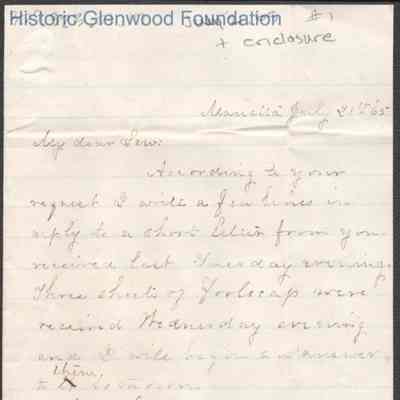 Historic Glenwood Foundation
#1
+ enclosure
Marietta July 21st 65
My dear Lew:
According to your
request I write a few lines in
reply to a short letter from you
received last Tuesday evening.
Three sheets of Foolscap were
received Wednesday evening
and I will begin to answer
them
to